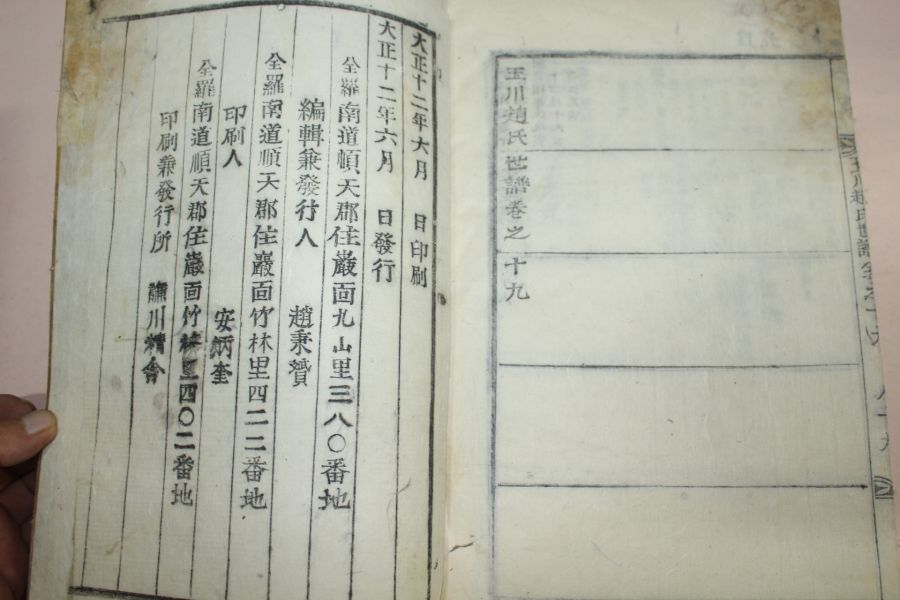 玉川趙氏世譜卷之十九
大正十二年六月 日印刷
大正十二年六月 日發行
全羅南道順天郡住巖面九山里三八〇番地
編輯兼發行人 趙秉贇
全羅南道順天郡住巖面竹林里四二二番地
印刷人 安炳奎
全羅南道順天郡住巖面竹林里四〇二番地
印刷兼發行所 謙川精舍
玉川趙氏世譜卷之十九